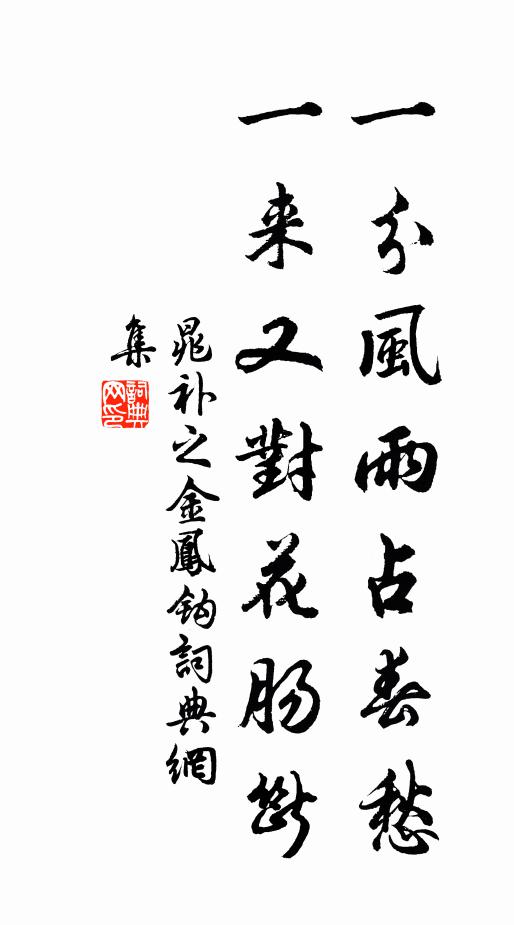 一分風雨占春愁
一来又對花肠斷
晁补之金鳳鈎詞典網
集
詞典
网印